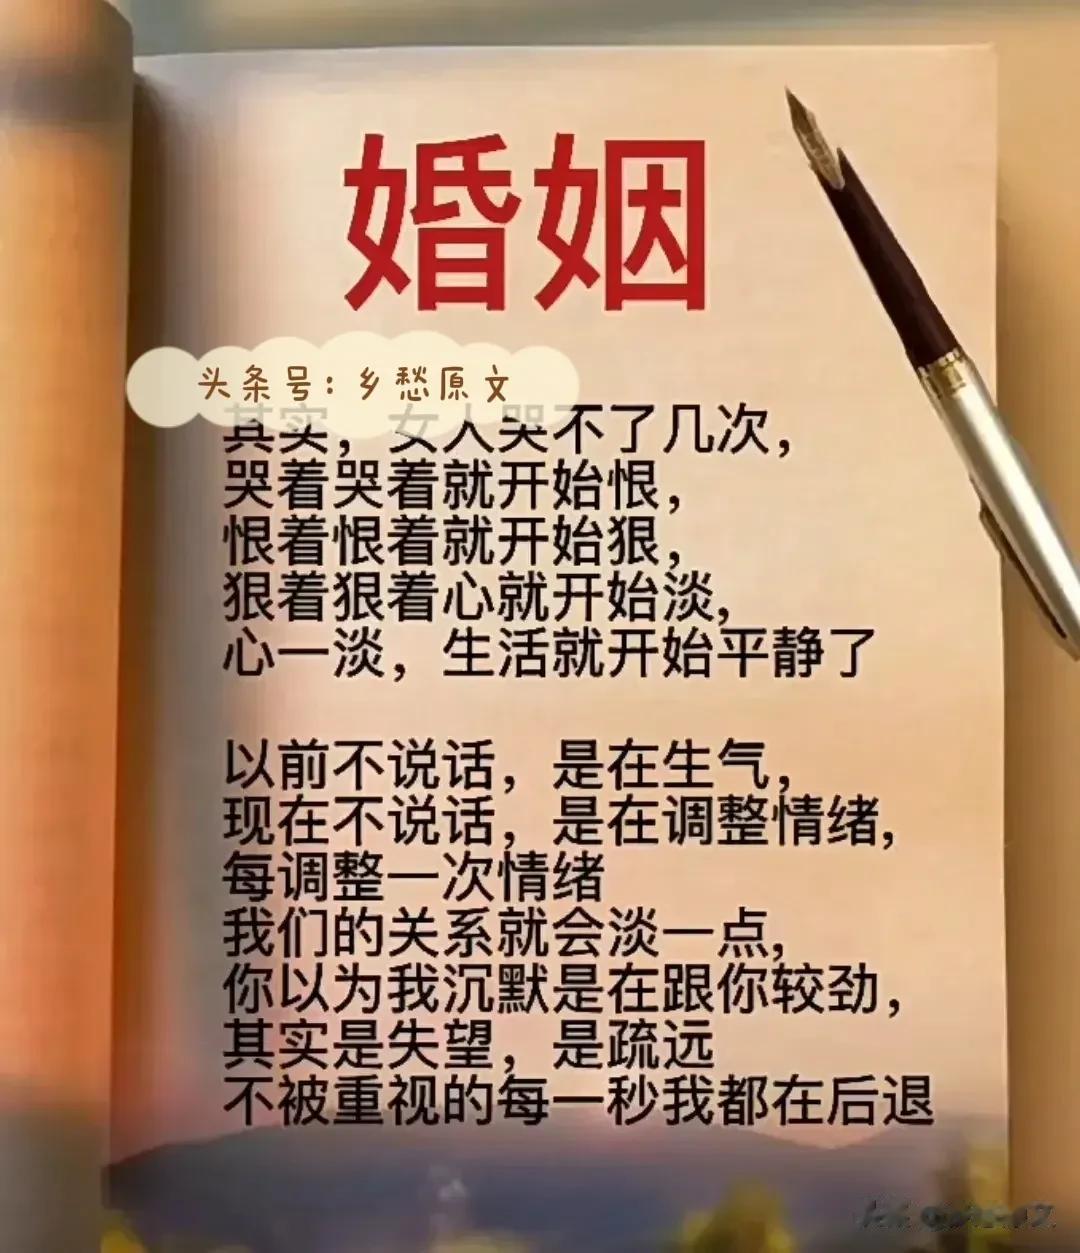 婚姻
头条号：乡愁原文
其实，女人哭不了几次，
哭着哭着就开始恨，
恨着恨着就开始狠，
狠着狠着心就开始淡，
心一淡，生活就开始平静了
以前不说话，是在生气，
现在不说话，是在调整情绪，
每调整一次情绪
我们的关系就会淡一点，
你以为我沉默是在跟你较劲，
其实是失望，是疏远
不被重视的每一秒我都在后退